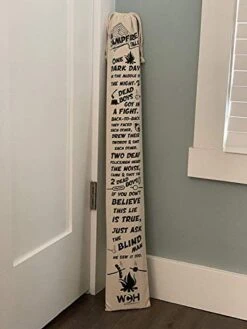 CAMPFIRE
TALE
ONE
DARK DAY
IN THE MIDDLE OF
THE NIGHT,
2 DEAD BOYS
GOT IN
A FIGHT.
BACK-TO-BACK
THEY FACED
EACH OTHER,
DREW THEIR
SWORDS & SHOT
EACH OTHER.
TWO DEAF
POLICEMEN HEARD
THE NOISE,
CAME & SHOT THE
2 DEAD BOYS
IF YOU DON'T
BELIEVE
THIS LIE
IS TRUE,
JUST ASK
THE
BLIND
MAN
HE SAW IT TOO.